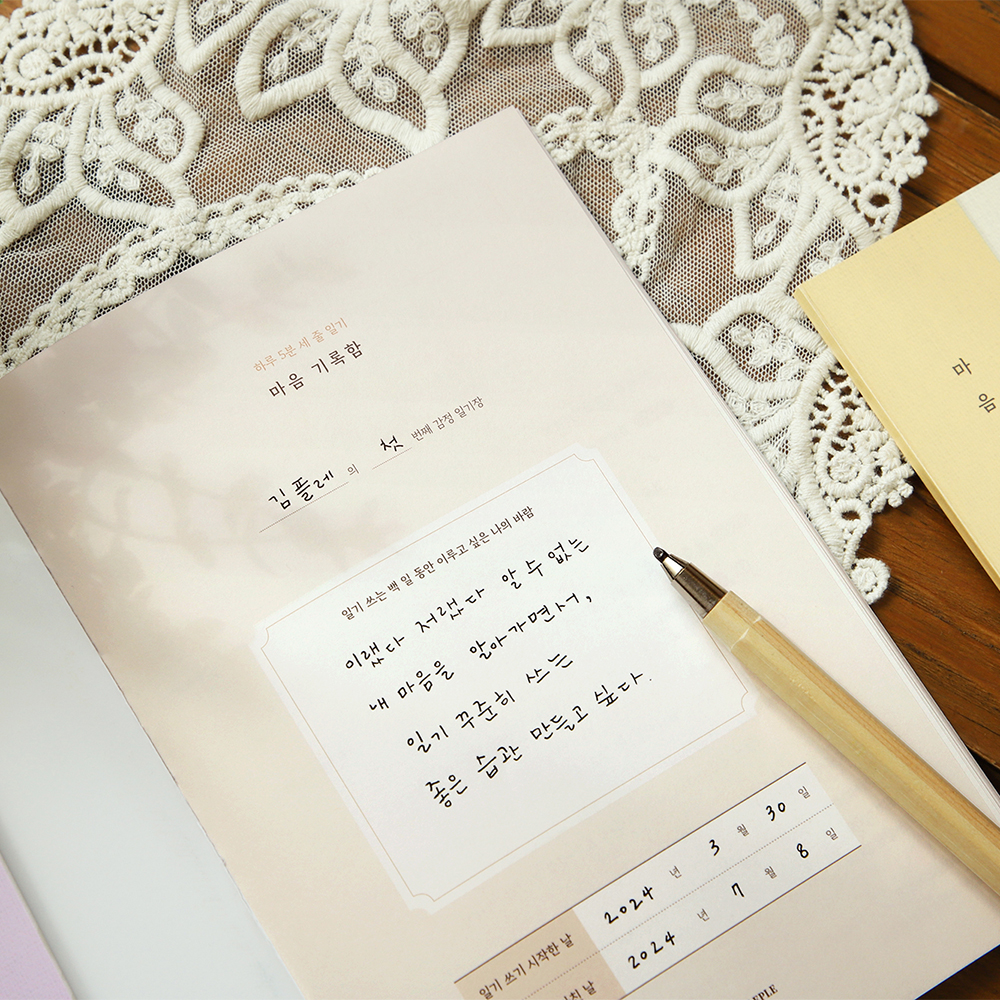 하루 5분 세 줄 일기
마음 기록함
김플레의 첫 번째 감정 일기장
일기 쓰는 백 일 동안 이루고 싶은 나의 바람
이랬다 저랬다 알 수 없는
내 마음을 알아가면서,
일기 꾸준히 쓰는
좋은 습관 만들고 싶다.
일기 쓰기 시작한 날 2024 년 3 월 30 일
날 2024 년 7 월 8 일
마음